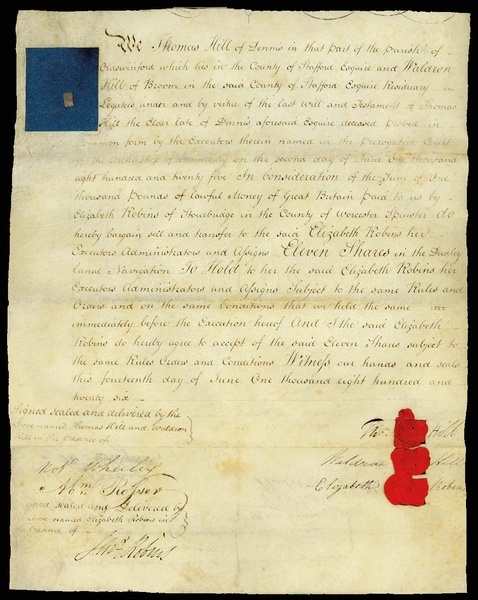 We Thomas Hill of Dennis in that part of the parish of
Oldswinford which lies in the County of Stafford Esquire and Waldron
Hill of Broom in the said County of Stafford Esquire Residuary
Legatees under and by virtue of the last will and Testament of Thomas
Hill the Elder late of Dennis aforesaid Esquire deceased proved in
common form by the Executors therein named in the Prerogative Court
of the Archbishop of Canterbury on the second day of June One thousand
eight hundred and twenty five In Consideration of the Sum of One
thousand Pounds of lawful Money of Great Britain paid to us by
Elizabeth Robins of Stourbridge in the County of Worcester Spinster do
hereby bargain sell and transfer to the said Elizabeth Robins her
Executors Administrators and Assigns Eleven Shares in the Dudley
Canal Navigation To Hold to her the said Elizabeth Robins her
Executors Administrators and Assigns Subject to the same Rules and
Orders and on the same Conditions that we held the same
immediately before the Execution hereof And I the said Elizabeth
Robins do hereby agree to accept of the said Eleven Shares subject to
the same Rules Orders and Conditions Witness our hands and seals
this fourteenth day of June One thousand eight hundred and
twenty six
Signed sealed and delivered by the
above named Thomas Hill and Waldron
Hill in the presence of
Thos. Hill
Waldron Hill
Elizabeth Robins
Signed sealed and delivered by
above named Elizabeth Robins in
presence of
Thos. Robins